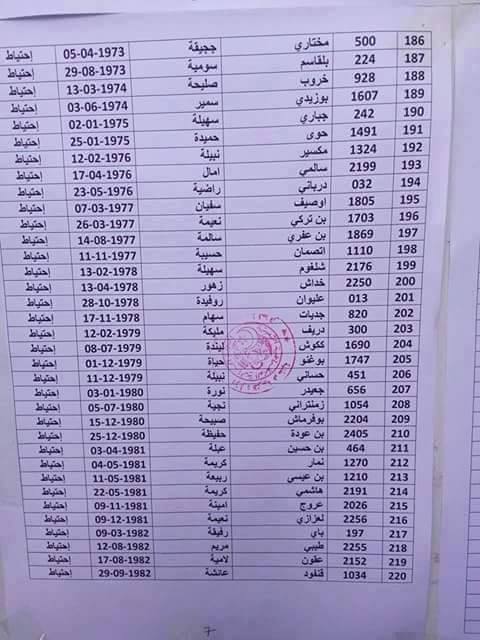 186 500 مختاري ججيقة 05-04-1973 إحتياط
187 224 بلقاسم سومية 29-08-1973 إحتياط
188 928 خروب صليحة 13-03-1974 إحتياط
189 1607 بوزيدي سمير 03-06-1974 إحتياط
190 242 جباري سهيلة 02-01-1975 إحتياط
191 1491 حوى حميدة 25-01-1975 إحتياط
192 1324 مكسير نبيلة 12-02-1976 إحتياط
193 2199 سالمي امال 17-04-1976 إحتياط
194 032 درباني راضية 23-05-1976 إحتياط
195 1805 اوصيف سفيان 07-03-1977 إحتياط
196 1703 بن تركي نعيمة 26-03-1977 إحتياط
197 1869 بن عفري سالمة 14-08-1977 إحتياط
198 1110 اتصمان حسيبة 11-11-1977 إحتياط
199 2176 شلغوم سهيلة 13-02-1978 إحتياط
200 2250 خداش زهور 13-04-1978 إحتياط
201 013 عليوان روفيدة 28-10-1978 إحتياط
202 820 جديات سهام 17-11-1978 إحتياط
203 300 دريف مليكة 12-02-1979 إحتياط
204 1690 ككوش ليندة 08-07-1979 إحتياط
205 1747 بوغنو حياة 01-12-1979 إحتياط
206 451 حساني نبيلة 11-12-1979 إحتياط
207 656 جعيدر نورة 03-01-1980 إحتياط
208 1054 زمنتراني نجية 05-07-1980 إحتياط
209 2204 بوفرماش صبيحة 15-12-1980 إحتياط
210 2405 بن عودة حفيظة 25-12-1980 إحتياط
211 464 بن حسين عبلة 03-04-1981 إحتياط
212 1270 نمار كريمة 04-05-1981 إحتياط
213 1210 بن عيسي ربيعة 11-05-1981 إحتياط
214 2191 هاشمي كريمة 22-05-1981 إحتياط
215 2026 عروج امينة 09-11-1981 إحتياط
216 2256 لعزازي نعيمة 09-12-1981 إحتياط
217 197 باي رفيقة 09-03-1982 إحتياط
218 2255 طيبي مريم 12-08-1982 إحتياط
219 2152 عقون لامية 17-08-1982 إحتياط
220 1034 قنفود عائشة 29-09-1982 إحتياط
7